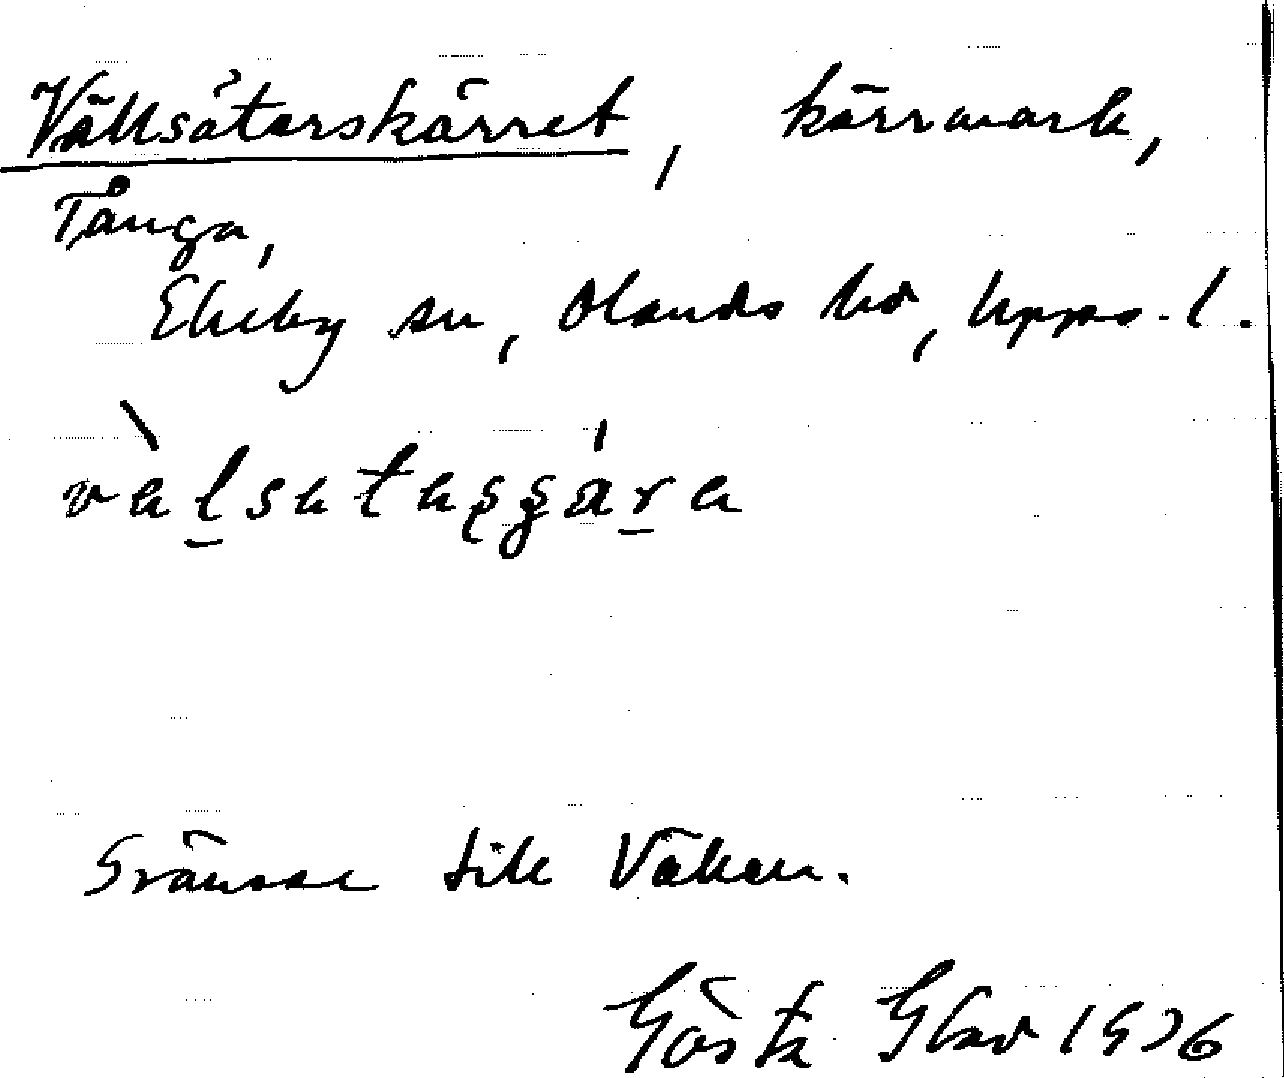 Vällsåterskärret, kärrmark,
Tånga,
Ekeby sn, Olands hd, Upps. l.
Gränsar till Vällen.
Gösta Glad 1936